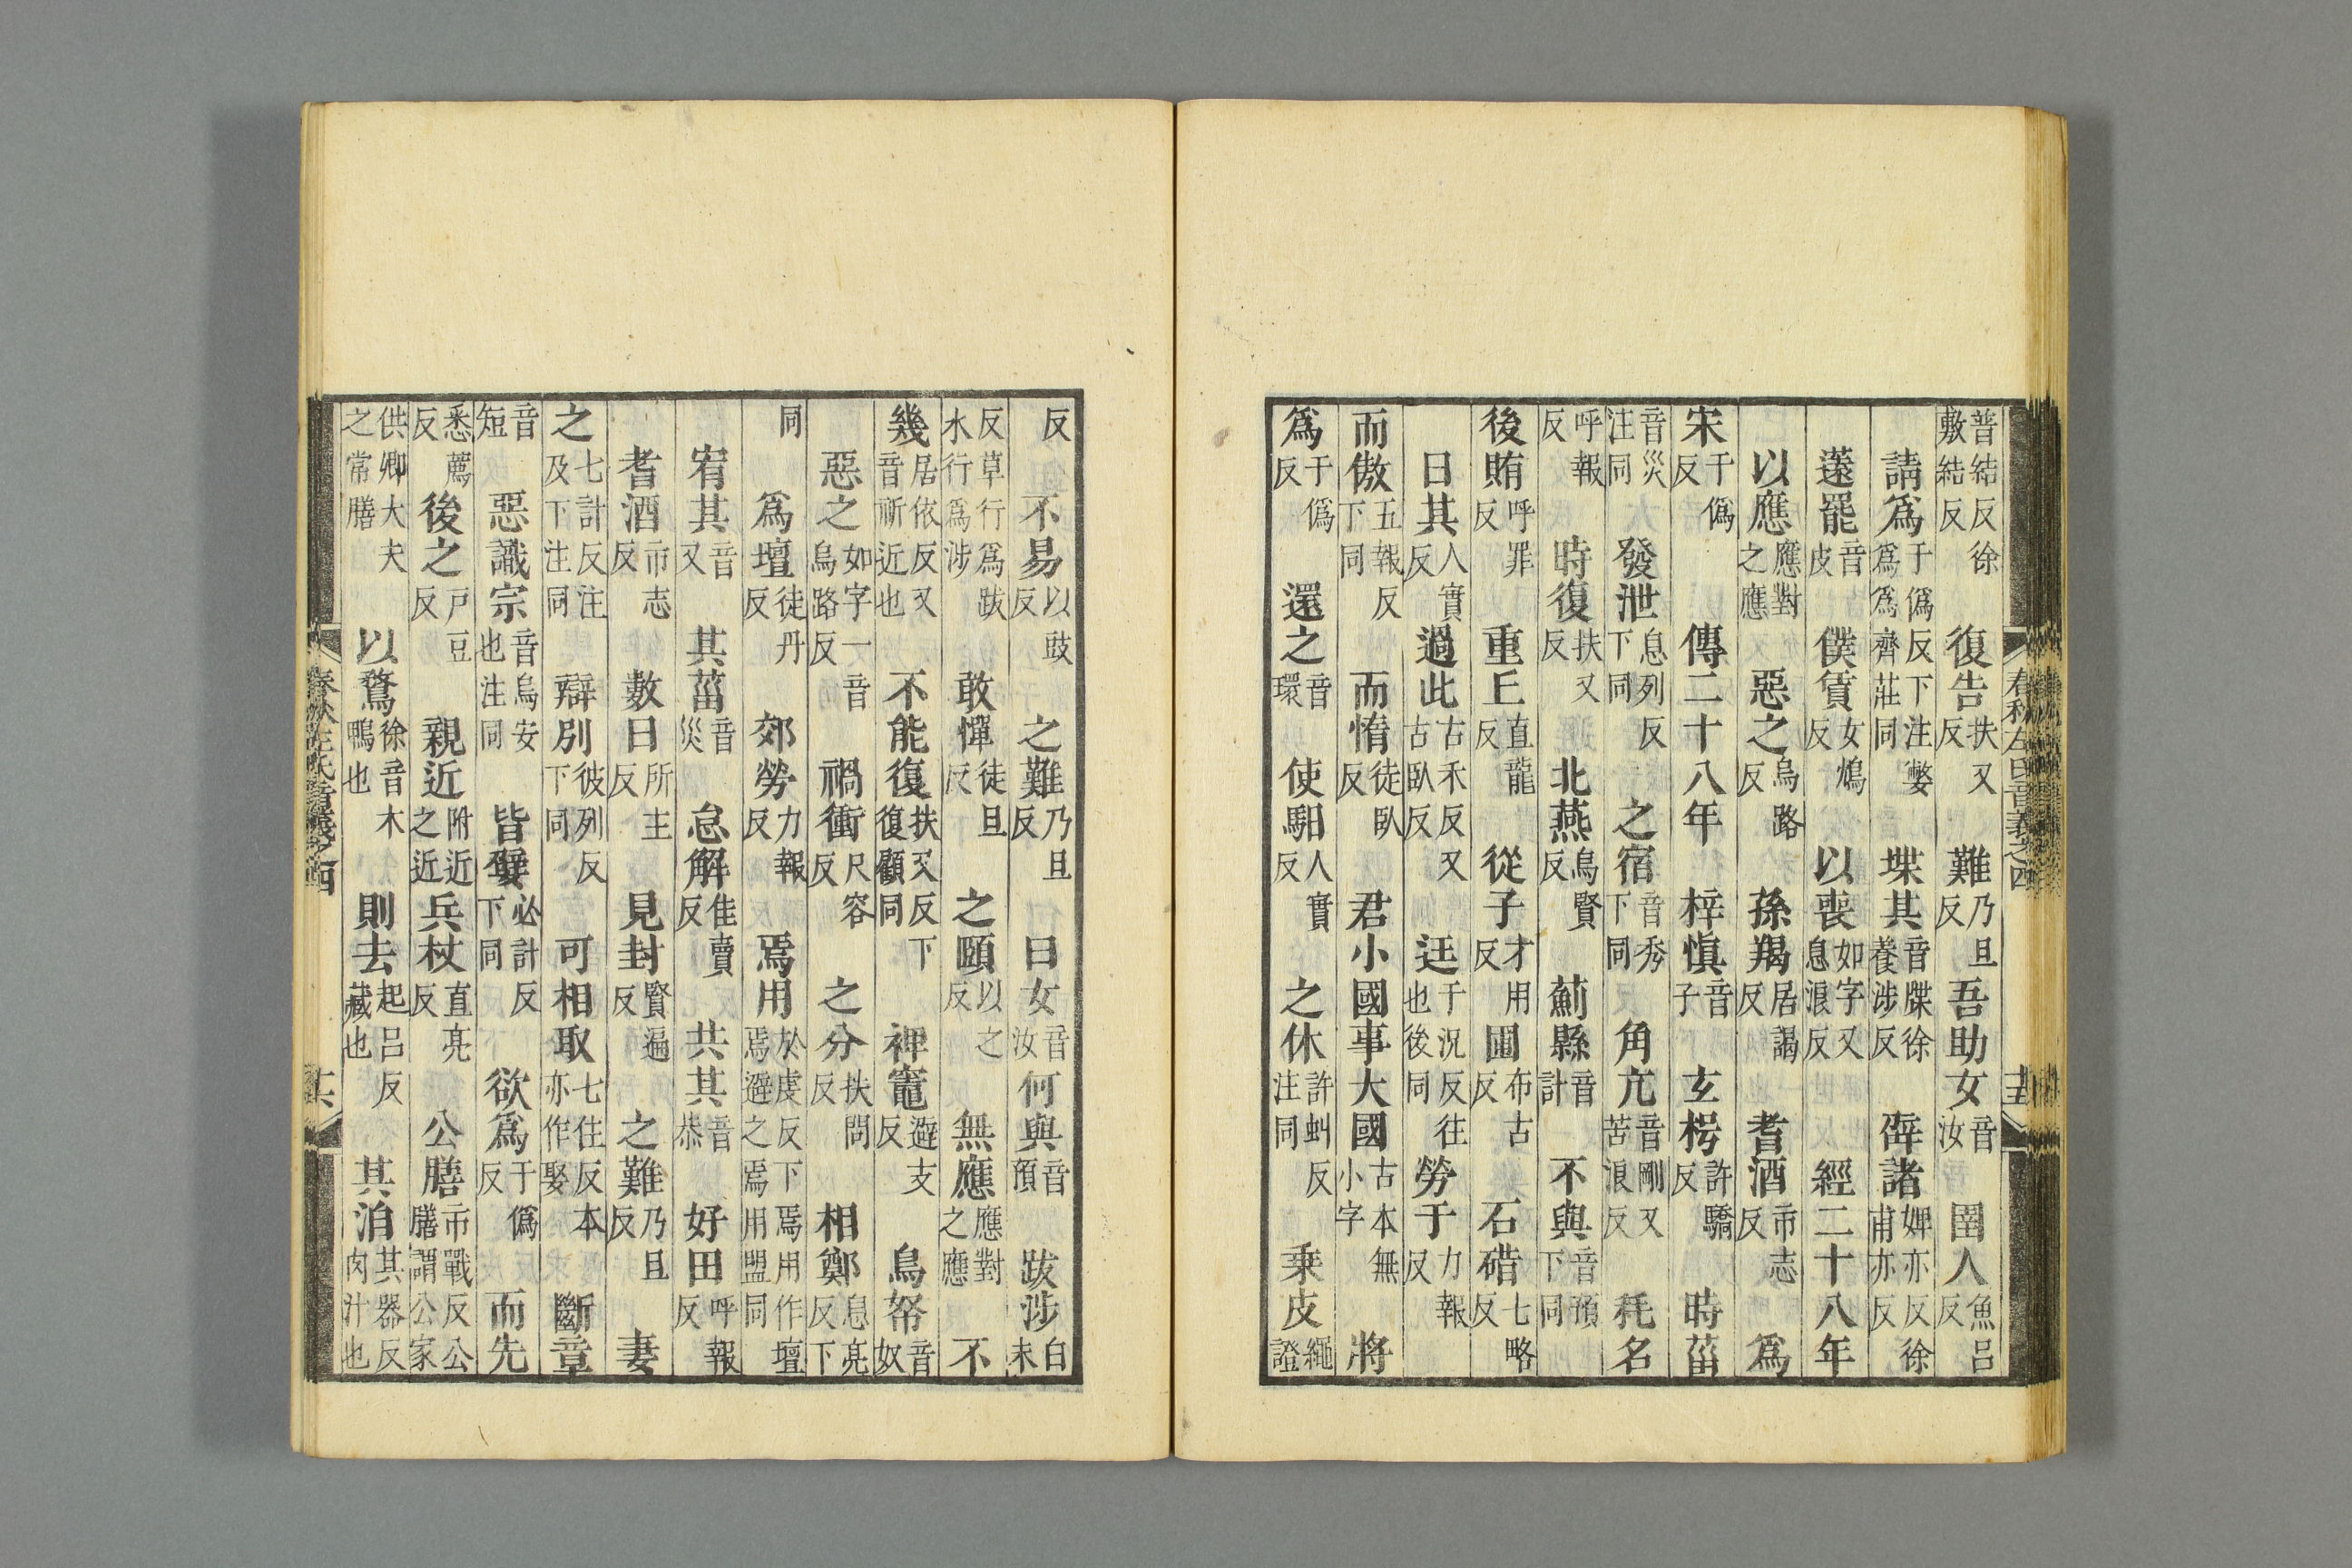 普結反徐敷結反　復告扶又反　難乃旦反　吾助女音汝　圉人魚呂反
請爲于僞反下注弊爲爲齊莊同　堞其音牒徐養涉反　俾諸婢亦反徐甫亦反
薳罷音皮　僕賃女鴆反　以喪如字又息浪反　經二十八年
以應應對之應　惡之烏路反　孫羯居謁反　耆酒市志反　爲
宋于僞反　傳二十八年　梓愼音子　玄枵許驕反　時菑
音災注同　發泄息列反下同　之宿音秀下同　角亢音剛又苦浪反　秏名
呼報反　時復扶又反　北燕烏賢反　薊縣音計　不與音預下同
後賄呼罪反　重丘直龍反　從子才用反　圃布古反　石碏七略反
日其人實反　過此古禾反又古臥反　迋于況反往也後同　勞于力報反
而傲五報反下同　而惰徒臥反　君小國事大國古本無小字　將
爲于僞反　還之音環　使馹人實反　之休許虯反注同　乗皮繩證
春秋左氏音義之四
反　不易以豉反　之難乃旦反　曰女音汝　何與音預　跋涉白末
反草行爲跋水行爲涉　敢憚徒旦反　之頤以之反　無應應對之應　不
幾居依反又音祈近也　不能復扶又反下復顧同　裨竈避支反　鳥帑音奴
惡之如字一音烏路反　禍衝尺容反　之分扶問反　相鄭息亮反下
同　爲壇徒丹反　郊勞力報反　焉用於虔反下焉用作壇焉避之焉用盟同
宥其音又　其菑音災　怠解佳賣反　共其音恭　好田呼報反
耆酒市志反　數日所主反　見封賢遍反　之難乃旦反　妻
之七計反注及下注同　辯別彼列反下同　可相取七住反本亦作娶　斷章
音短　惡識宗音烏安也注同　皆嬖必計反下同　欲爲于僞反　而先
悉薦反　後之戸豆反　親近附近之近　兵杖直亮反　公膳市戰反公膳謂公家
供卿大夫之常膳　以鶩徐音木鴨也　則去起呂反藏也　其洎其器反肉汁也
春秋左氏音義之四